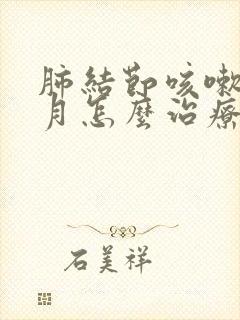 肺結節咳嗽
月怎麼治療
石美祥